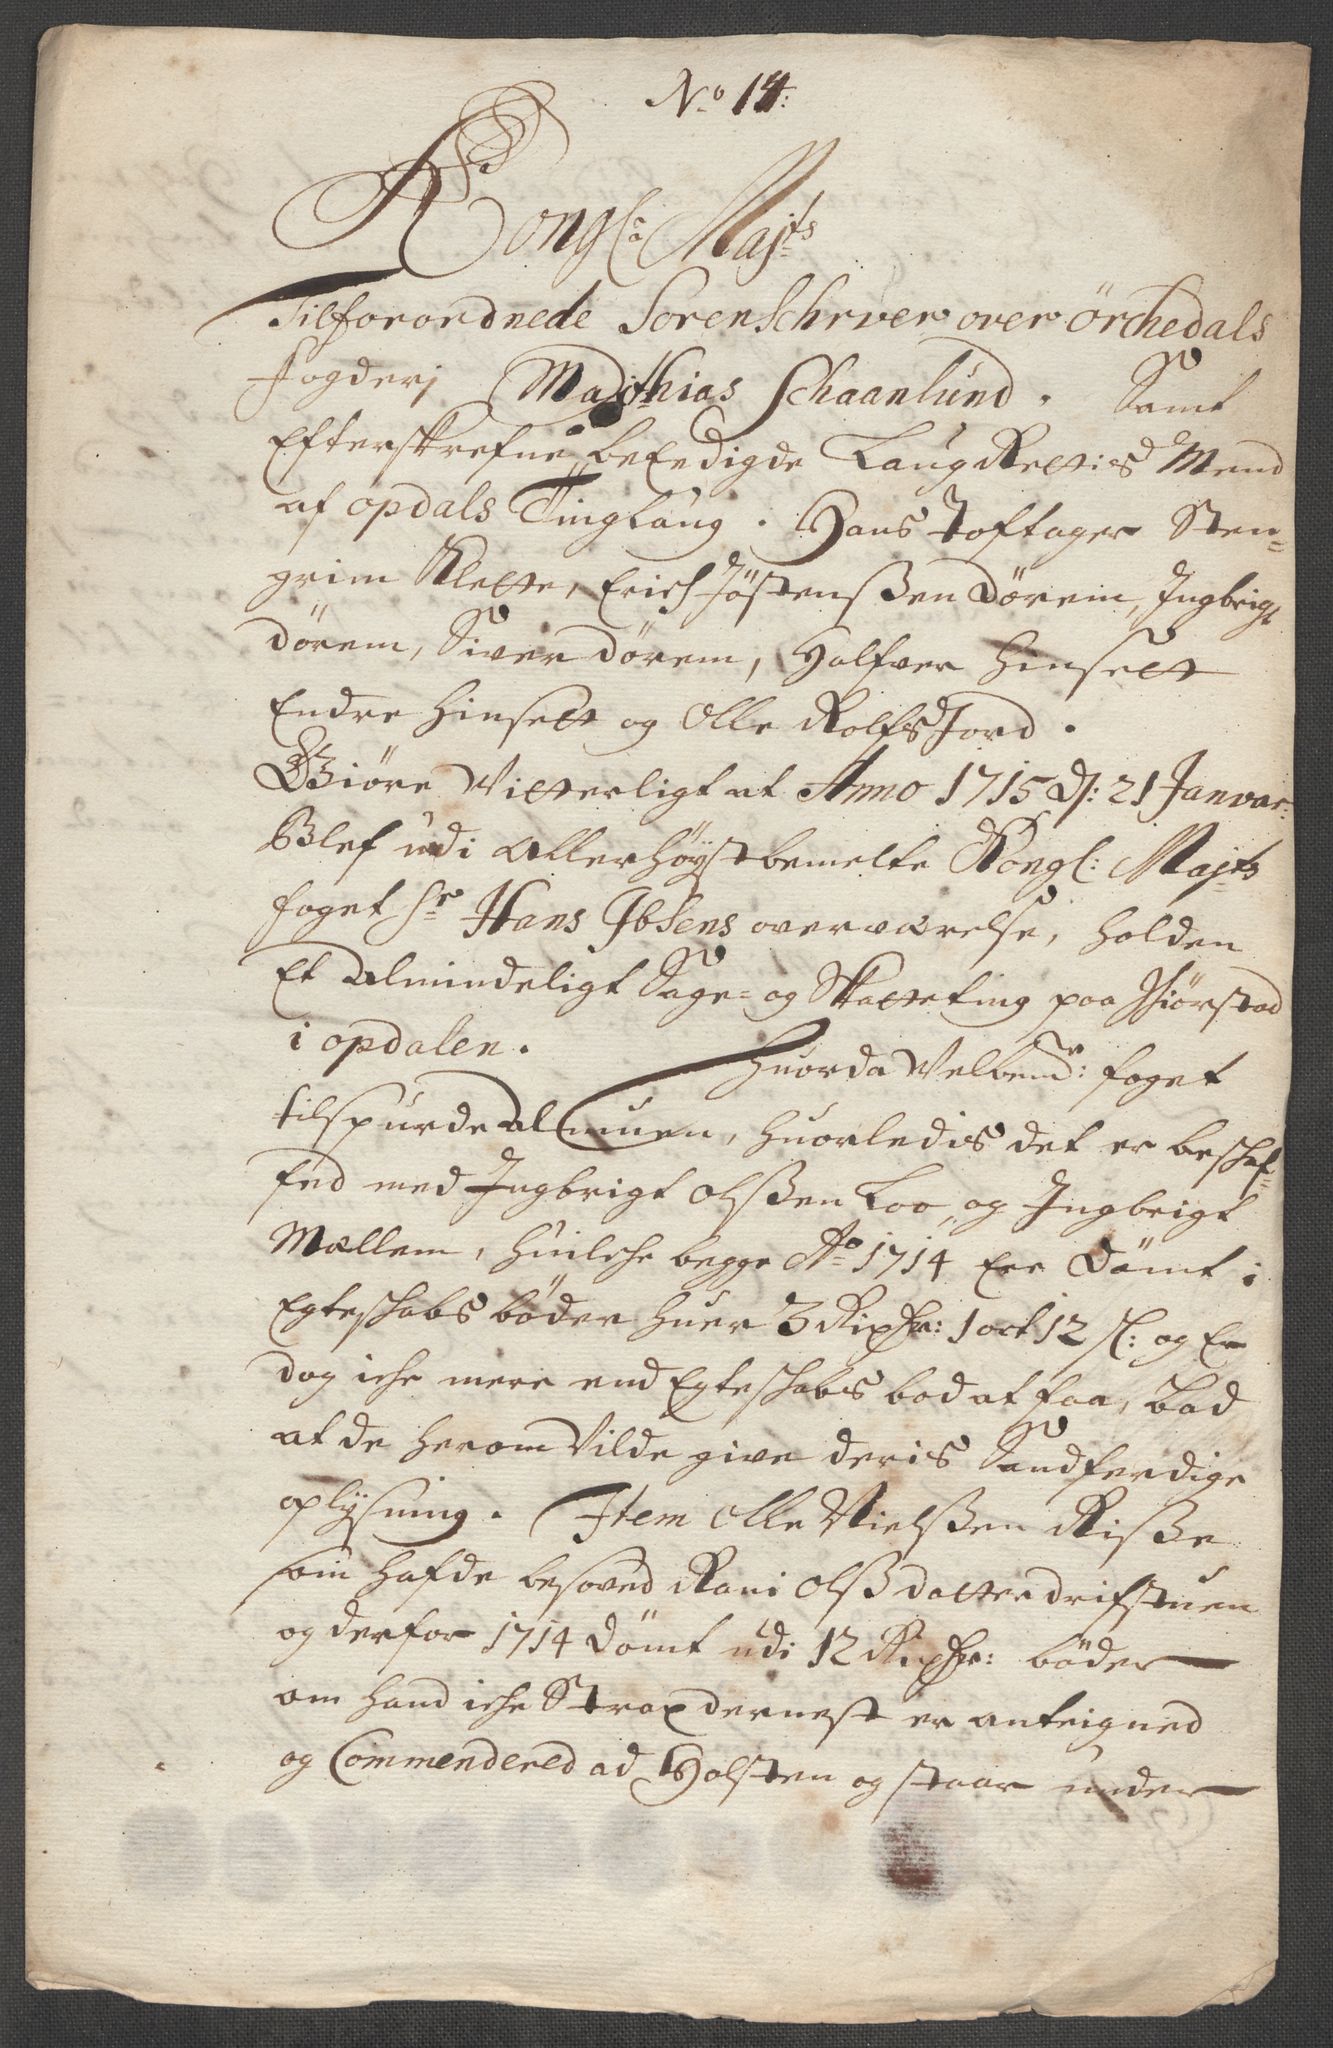 No 14:
Kongl: Majts
Tilforordnede Sorenschrver over Örchedals
fogderj Matthias Schaanlund. Samt
Efterskrefne beEedigde LaugRettis Mend
af opdals Tinglaug. Hans Toftager Sten-
grim Klette, Erich Jöstenßen Dørem, Ingbrigt
Dörem, Siver Dörem, Halfver Hinselt
Endre Hinselt og Olle Rolfsjord.
Giöre Vitterligt at Anno 1715 d: 21 Janvar:
Blef udi allerhøystbemelte Kongl: Majts
foget Sr Hans Ibsens overværelse, holden
Et almindeligt Sage- og Skatteting paa
i opdalen. Huorda Velbemr: foget
tilspurde almuen, huorledis det er beschaf-
fed med Ingbrigt Olßen Loo og Ingbrigt
Mællem, huilche begge Ao 1714 Ere Dömt i
Egteschabs böder huer 3 Rixdr: 1 ort 12 s: og Er
dog iche mere end Egteschabs bod at faa, bad
at de herom Vilde give deris Sandferdige
oplysning. Item Olle Nielßen Riße
som hafde besoved Rani Olßdatter drifstuen
og derfor 1714 dömt udi 12 Rixdr: böder
om hand iche Strax dernest er anteigned
og Commendered ad Holsten og staar under